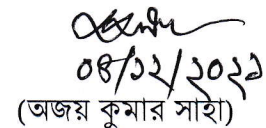 ০৪/১২/২০২১
(অজয় কুমার সাহা)